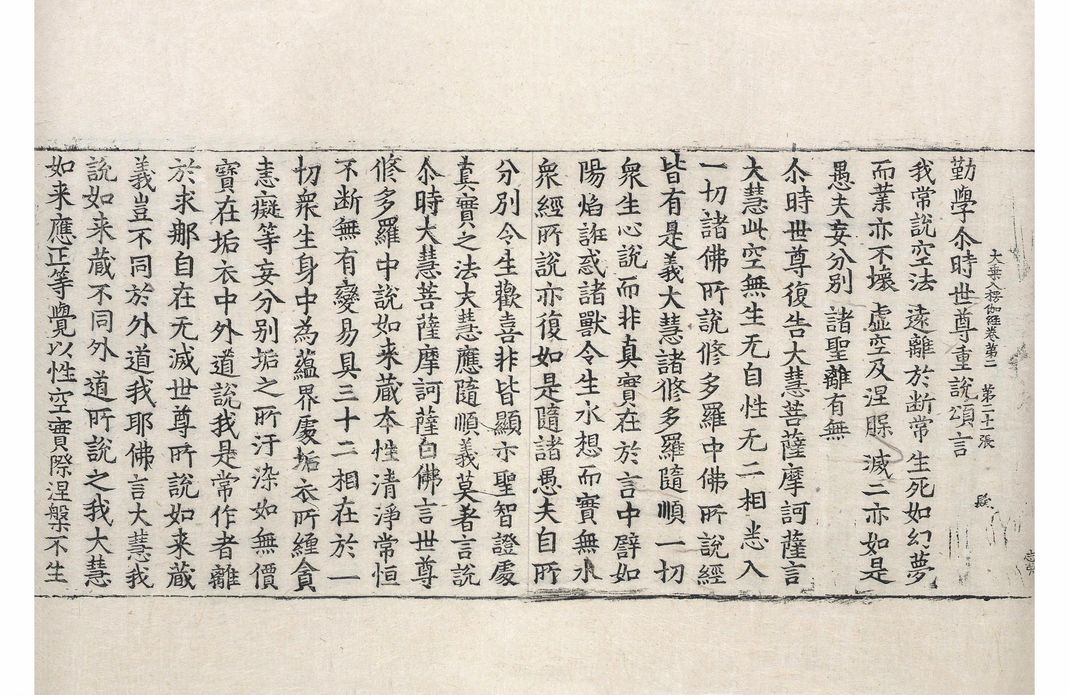 大乗入楞伽經卷第二 第二十一張
勤學尒時世尊重說頌言
我常說空法 遠離於断常 生死如幻夢
而業亦不壞 虛空及涅 滅二亦如是
愚夫妄分別 諸聖離有無
尒時世尊復告大慧菩薩摩訶薩言
大慧此空無生无自性无二相悉入
一切諸佛所說修多羅中佛所說經
皆有是義大慧諸修多羅隨順一切
衆生心說而非真實在於言中譬如
陽焰誑惑諸獸令生水想而實無水
衆經所說亦復如是隨諸愚夫自所
分別令生歡喜非皆顯亦聖智證處
真實之法大慧應隨順義莫著言說
尒時大慧菩薩摩訶薩白佛言世尊
修多羅中說如来藏本性清淨常恒
不断無有變易具三十二相在於一
切衆生身中為蘊界處垢衣所纏貪
恚癡等妄分別垢之所汙染如無價
寶在垢衣中外道說我是常作者離
於求那自在无滅世尊所說如来藏
義豈不同於外道我耶佛言大慧我
說如来藏不同外道所說之我大慧
如来應正等覺以性空實際涅槃不生